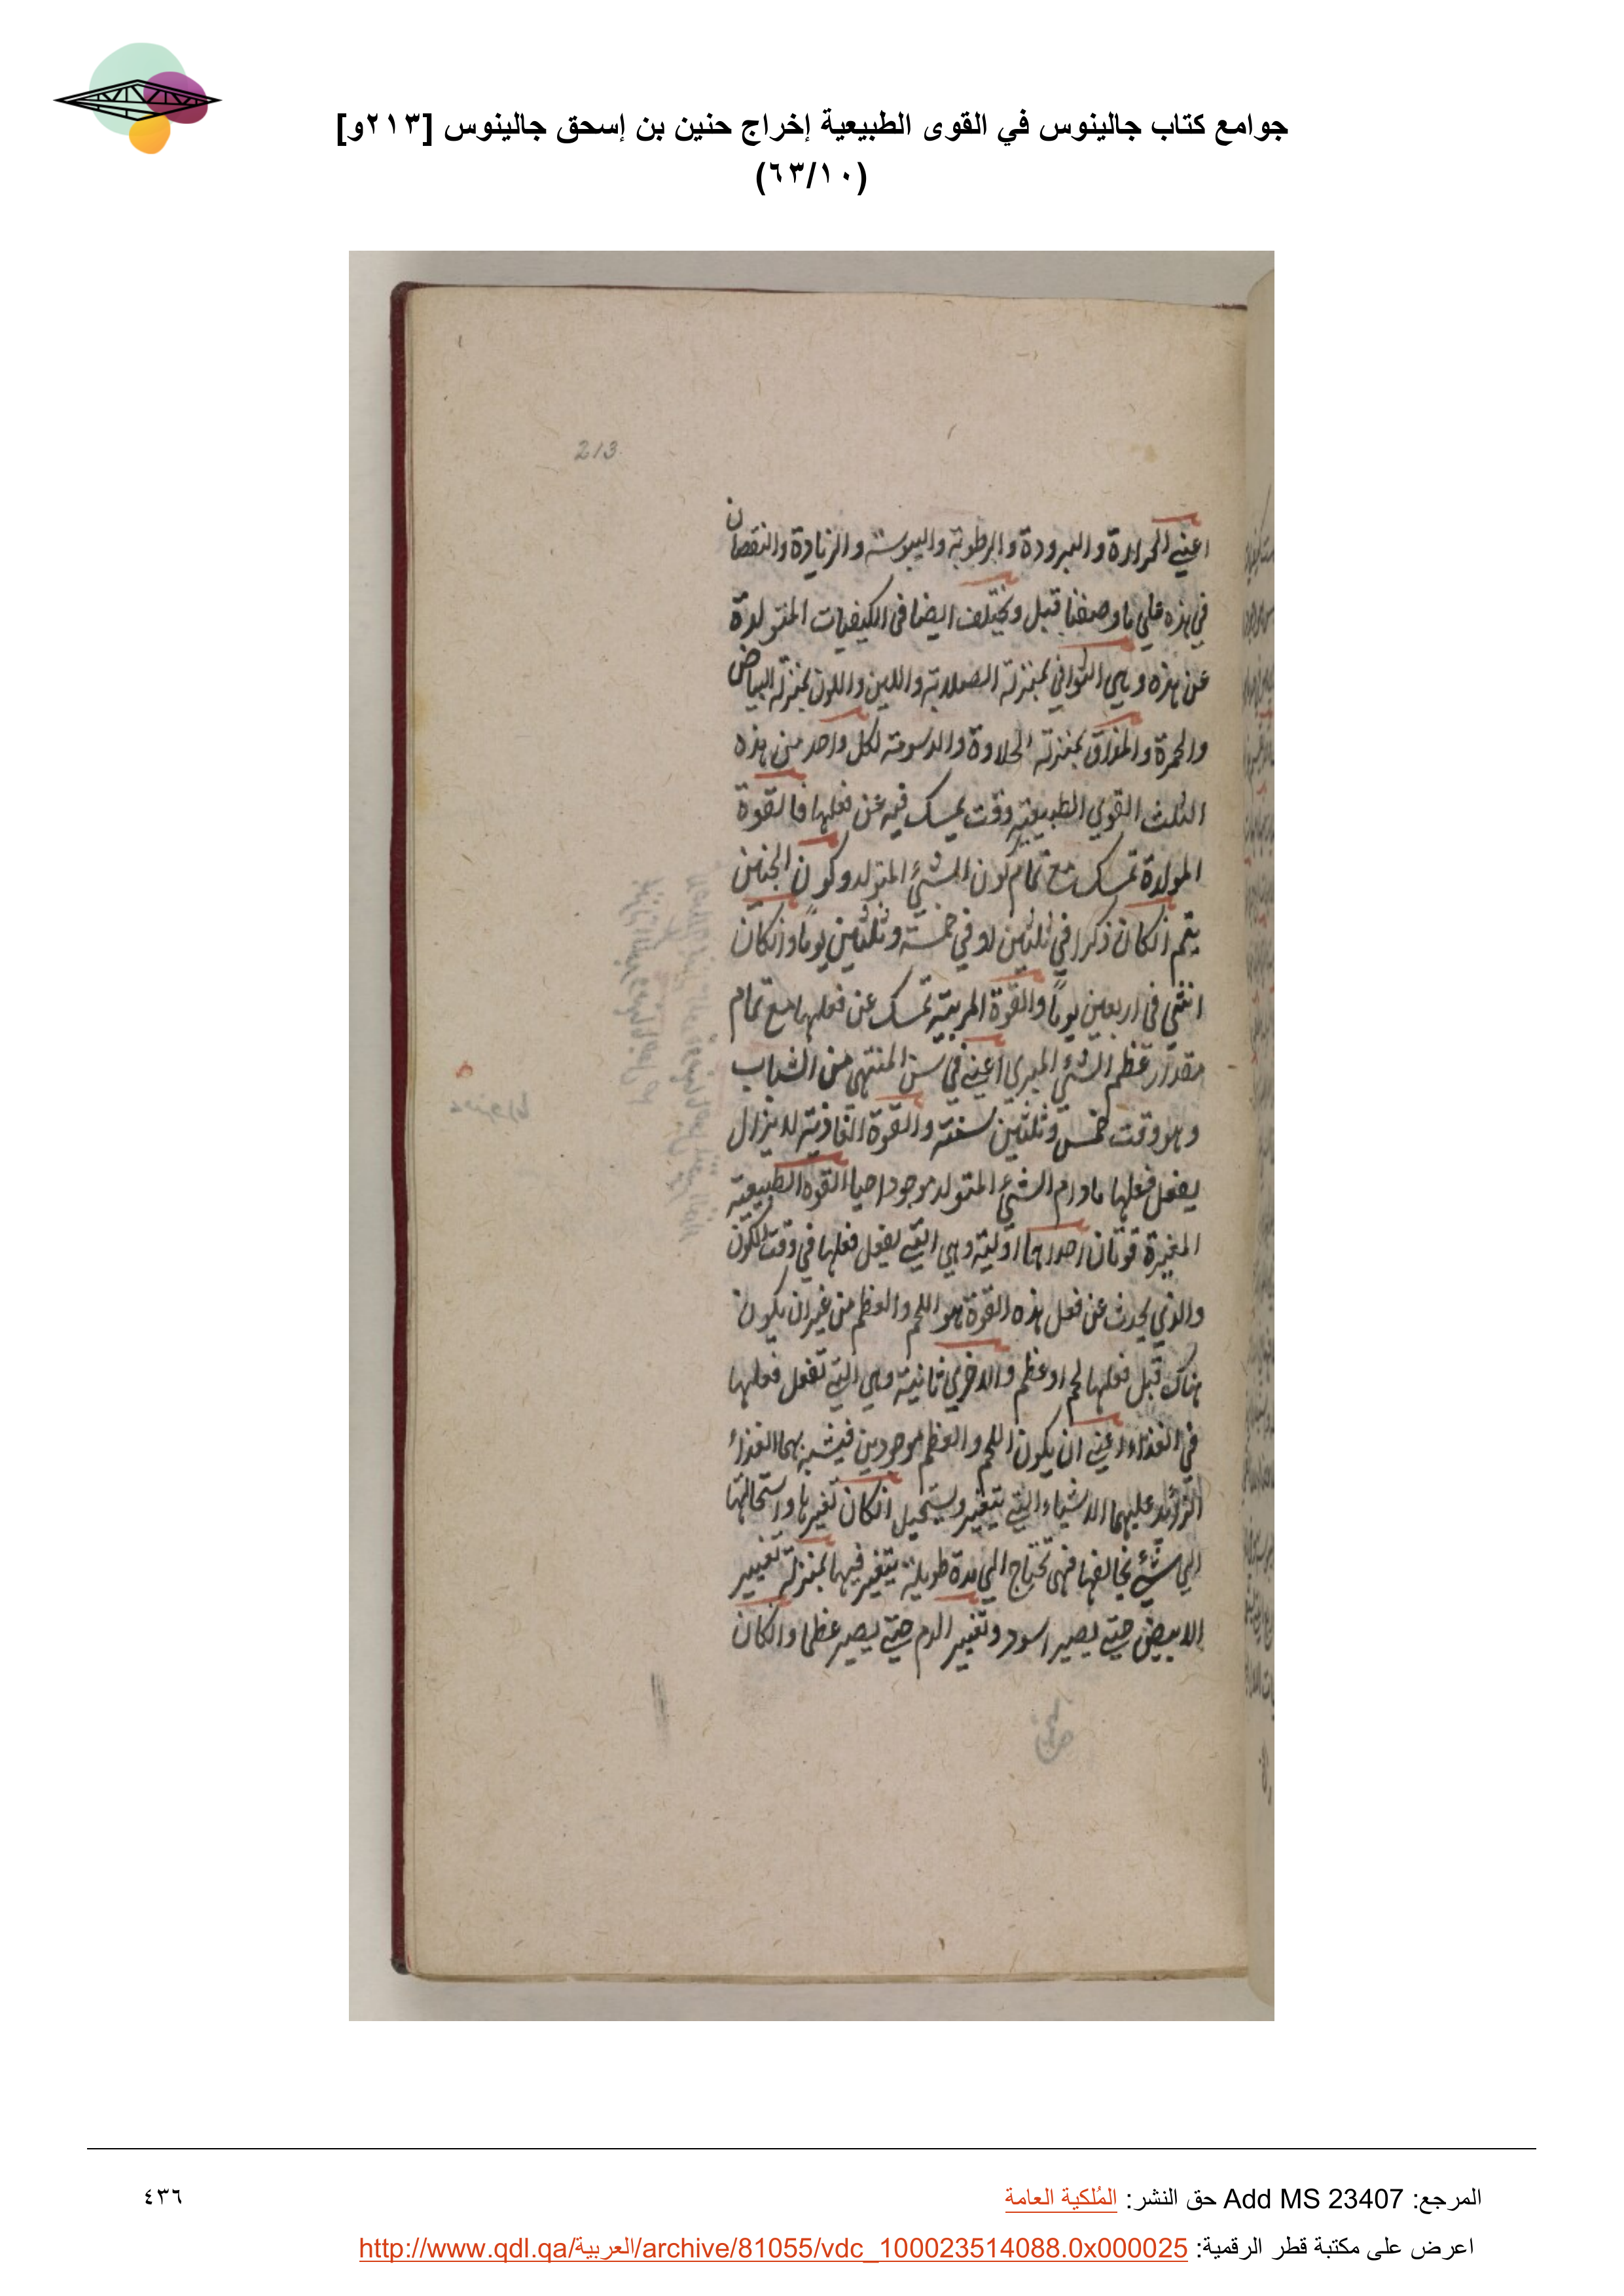 جوامع كتاب جالينوس في القوى الطبيعية إخراج حنين بن إسحق جالينوس [٢١٣و]
(٦٣/١٠)
213
اعني الحرارة والبرودة والرطوبة واليبوسة والزيادة والنقصان
في هذه علي ما وصفنا قبل ويختلف ايضا في الكيفيات المتولدة
عن هذه وهي الثواني بمنزلة الصلابة واللين واللون بمنزلة البياض
والحمرة والمذاق بمنزلة الحلاوة والدسومة لكل واحد من هذه
الثلث القوي الطبيعية وقت يمسك فيه عن فعلها فالقوة
المولدة تمسك مع تمام كون الشئ المتولد وكون الجنين
يتم انكان ذكرا في ثلثين او في خمسة وثلثين يوماً وانكان
انثي في اربعين يوماً والقوة المربية تمسك عن فعلها مع تمام
مقدار عظم الشئ المربي اعني في سن المنتهي من الشباب
وهو وقت خمس وثلثين سنة والقوة الغاذية لا يزال
يفعل فعلها ما دام الشئ المتولد موجودا حيا القوه الطبيعية
المغيرة قوتان احداهما اولية وهي التي يفعل فعلها في وقت الكون
والذي يحدث عن فعل هذه القوة هو اللحم والعظم من غير ان يكون
هناك قبل فعلها لحم او عظم والاخري ثانية وهي التي تفعل فعلها
في الغذاء اعني ان يكون اللحم والعظم موجودين فيشبه بهما الغذاء
الزايد عليهما الاشياء التي يتغير ويستحيل انكان تغيرها واستحالتها
الي شئ يخالفها فهي تحتاج الي مدة طويلة يتغير فيها بمنزلة تغيير
الابيض حتي يصير اسود وتغيير الدم حتي يصير عظما وانكان
المرجع: Add MS 23407 حق النشر: المُلكية العامة
٤٣٦
اعرض على مكتبة قطر الرقمية: http://www.qdl.qa/العربية/archive/81055/vdc_100023514088.0x000025